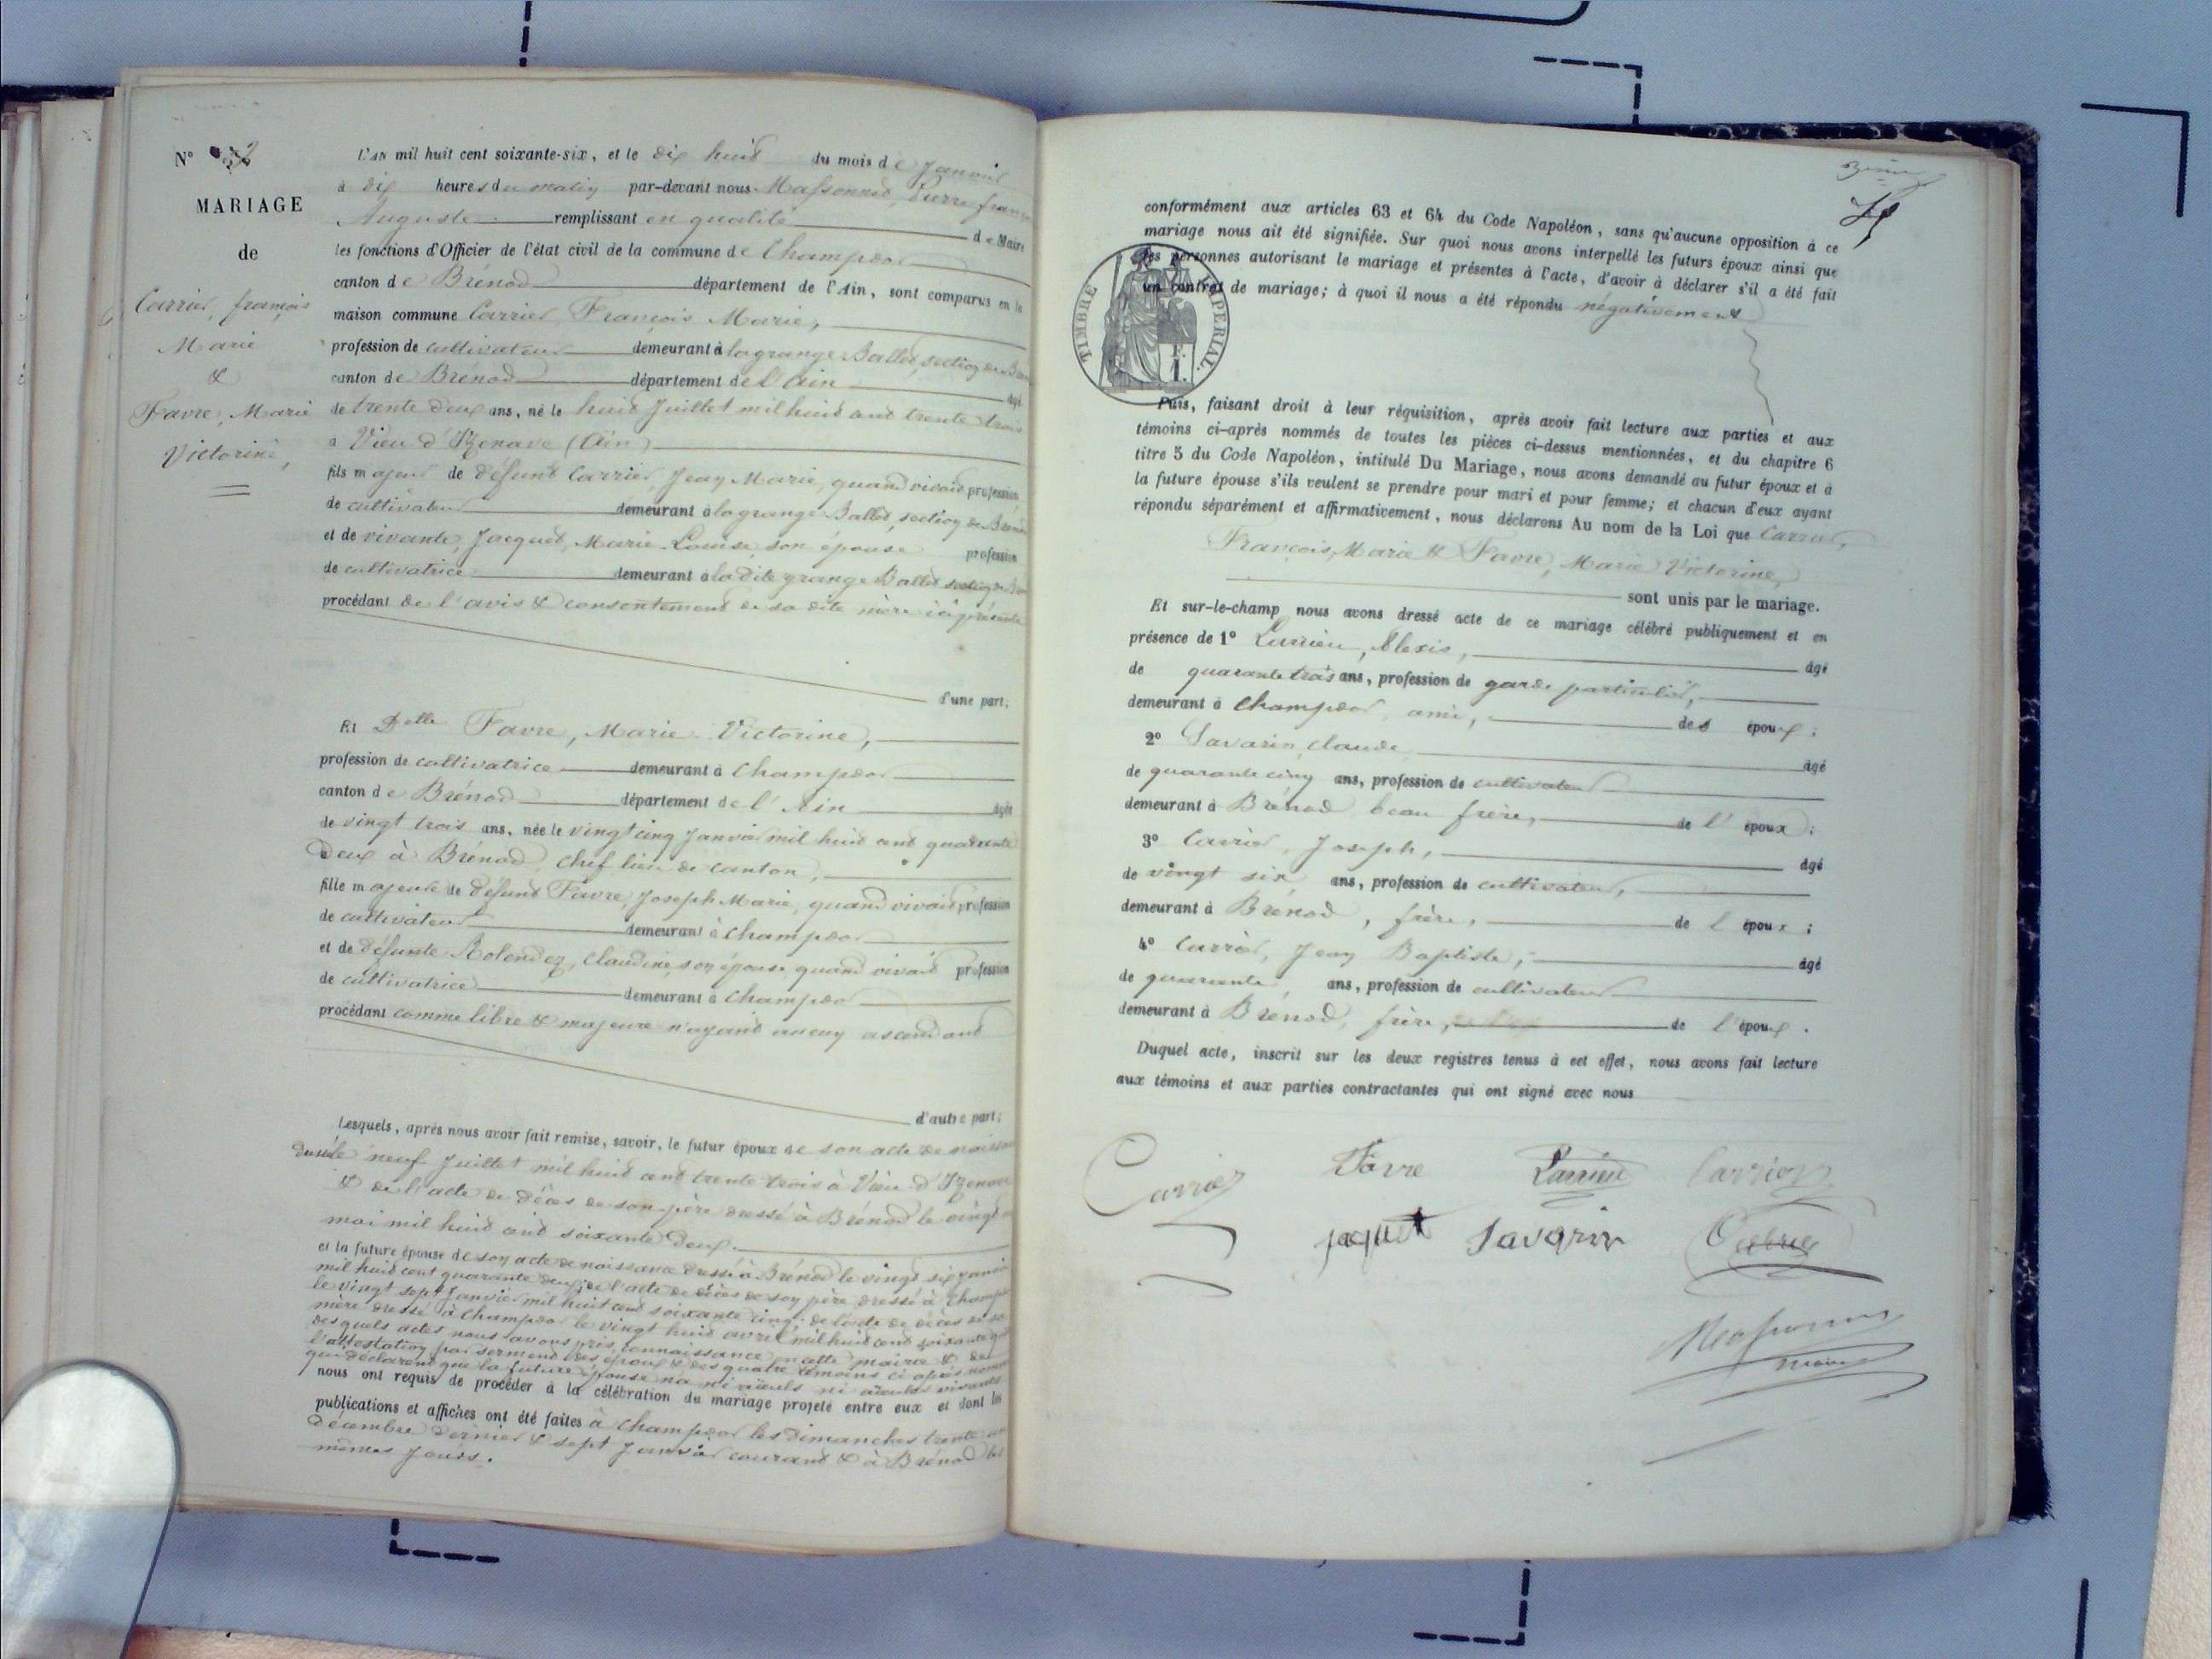 N° 2
MARIAGE
de
Carrier, françois
Marie
&
Favre, Marie
Victorine,
L'AN mil huit cent soixante-six, et le dix huit du mois de Janvier
à dix heures du matin par-devant nous Massonnet, Pierre françois
Auguste remplissant en qualité de Maire
les fonctions d'Officier de l'état civil de la commune de Champdor
canton de Brénod département de l'Ain, sont comparus en la
maison commune Carrier, François Marie,
profession de cultivateur demeurant à la grange Ballet, section de
canton de Brénod département de l'Ain âgé
de trente deux ans, né le huit Juillet mil huit cent trente trois
à Vieu d'Izenave (Ain)
fils majeur de défunt Carrier, Jean Marie, quand vivait profession
de cultivateur demeurant à la grange Ballet, section de Brénod
et de vivante, Jacquet, Marie Louise, son épouse profession
de cultivatrice demeurant à la dite grange Ballet section de
procédant de l'avis & consentement de sa dite mère ici présente
d'une part;
Et Delle Favre, Marie Victorine,
profession de cultivatrice demeurant à Champdor
canton de Brénod département de l'Ain âgée
de vingt trois ans, née le vingt cinq Janvier mil huit cent quarante
deux à Brénod, chef lieu de canton,
fille majeure de défunt Favre, Joseph Marie, quand vivait profession
de cultivateur demeurant à Champdor
et de défunte Rolendez, Claudine son épouse, quand vivait profession
de cultivatrice demeurant à Champdor
procédant comme libre & majeure n'ayant aucun ascendant
d'autre part;
Lesquels, après nous avoir fait remise, savoir, le futur époux de son acte de naissance
dressé le neuf Juillet mil huit cent trente trois à Vieu d'Izenave
& de l'acte de décès de son père dressé à Brénod le vingt
mai mil huit cent soixante deux.
et la future épouse de son acte de naissance dressé à Brénod le vingt six Janvier
mil huit cent quarante deux, de l'acte de décès de son père dressé à Champdor
le vingt sept Janvier mil huit cent soixante cinq; de l'acte de décès de sa
mère dressé à Champdor le vingt huit avril mil huit cent soixante
desquels actes nous avons pris connaissance en cette mairie & de
l'attestation par serment des époux & des quatre témoins ci après nommés
qui déclarent que la future épouse n'a ni aïeuls ni aïeules vivants
nous ont requis de procéder à la célébration du mariage projeté entre eux et dont les
publications et affiches ont été faites à Champdor les dimanches trente
décembre dernier & sept Janvier courant & à Brénod les
mêmes jours.
conformément aux articles 63 et 64 du Code Napoléon, sans qu'aucune opposition à ce
mariage nous ait été signifiée. Sur quoi nous avons interpellé les futurs époux ainsi que
les personnes autorisant le mariage et présentes à l'acte, d'avoir à déclarer s'il a été fait
un contrat de mariage; à quoi il nous a été répondu négativement
TIMBRE IMPÉRIAL.
Puis, faisant droit à leur réquisition, après avoir fait lecture aux parties et aux
témoins ci-après nommés de toutes les pièces ci-dessus mentionnées, et du chapitre 6
titre 5 du Code Napoléon, intitulé Du Mariage, nous avons demandé au futur époux et à
la future épouse s'ils veulent se prendre pour mari et pour femme; et chacun d'eux ayant
répondu séparément et affirmativement, nous déclarons Au nom de la Loi que Carrier,
François, Marie & Favre, Marie Victorine,
sont unis par le mariage.
Et sur-le-champ nous avons dressé acte de ce mariage célébré publiquement et en
présence de 1° Larrieu, Alexis, âgé
de quarante trois ans, profession de garde particulier,
demeurant à Champdor, ami, des époux;
2° Savarin, Claude âgé
de quarante cinq ans, profession de cultivateur
demeurant à Brénod beau frère, de l'époux;
3° Carrier, Joseph, âgé
de vingt six ans, profession de cultivateur,
demeurant à Brénod, frère, de l'époux;
4° Carrier, Jean Baptiste, âgé
de quarante, ans, profession de cultivateur
demeurant à Brénod, frère, de l'époux.
Duquel acte, inscrit sur les deux registres tenus à cet effet, nous avons fait lecture
aux témoins et aux parties contractantes qui ont signé avec nous
Carrier Favre Larrieu Carrier
jaquet Savarin
Massonnet
maire